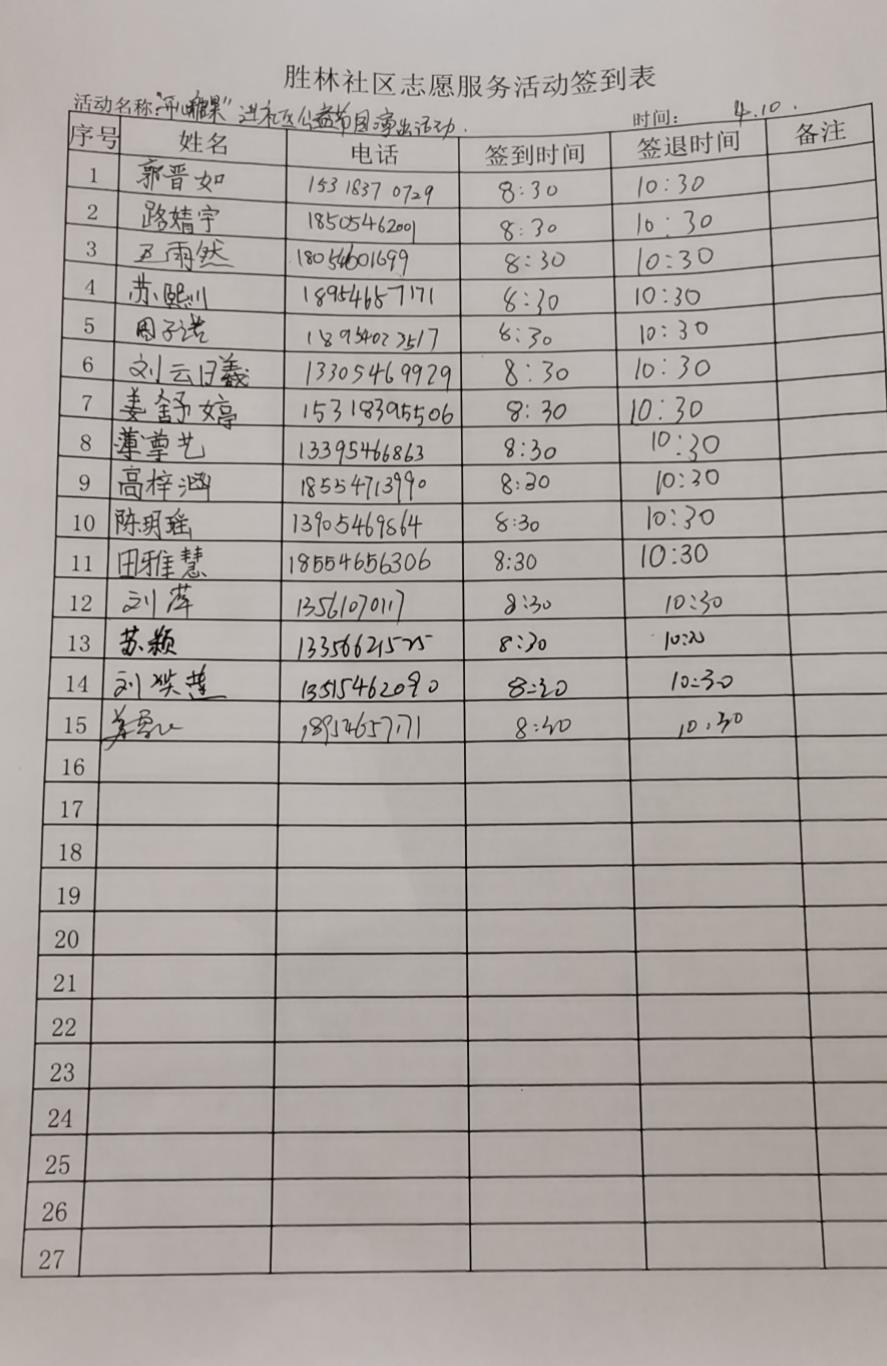 胜林社区志愿服务活动签到表
活动名称:"开心糖果"进社区公益节目演出活动. 时间: 4.10.
序号 姓名 电话 签到时间 签退时间 备注
1 郭晋如 15318370729 8:30 10:30
2 路婧宇 18505462001 8:30 10:30
3 王雨然 18054601699 8:30 10:30
4 苏熙川 18954657171 8:30 10:30
5 周子诺 18954022517 8:30 10:30
6 刘云曦 13305469929 8:30 10:30
7 姜舒婷 15318395506 8:30 10:30
8 薄尊艺 13395466863 8:30 10:30
9 高梓涵 18554713990 8:30 10:30
10 陈玥瑶 13905469864 8:30 10:30
11 田雅慧 18554656306 8:30 10:30
12 刘萍 13561070117 8:30 10:30
13 苏颖 13356621525 8:30 10:30
14 刘 莲 13515462090 8:30 10:30
15 18954657171 8:30 10:30
16
17
18
19
20
21
22
23
24
25
26
27